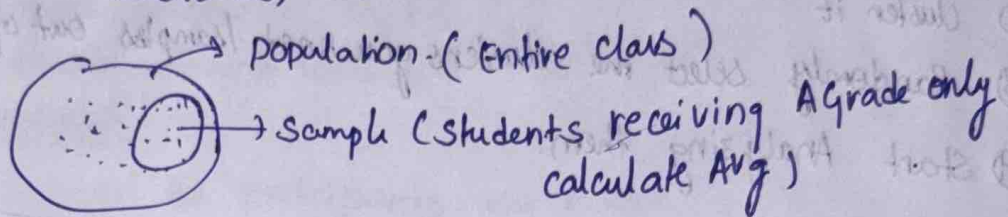 population - ( Entire class )
Sample ( Students receiving A Grade only
calculate Avg )